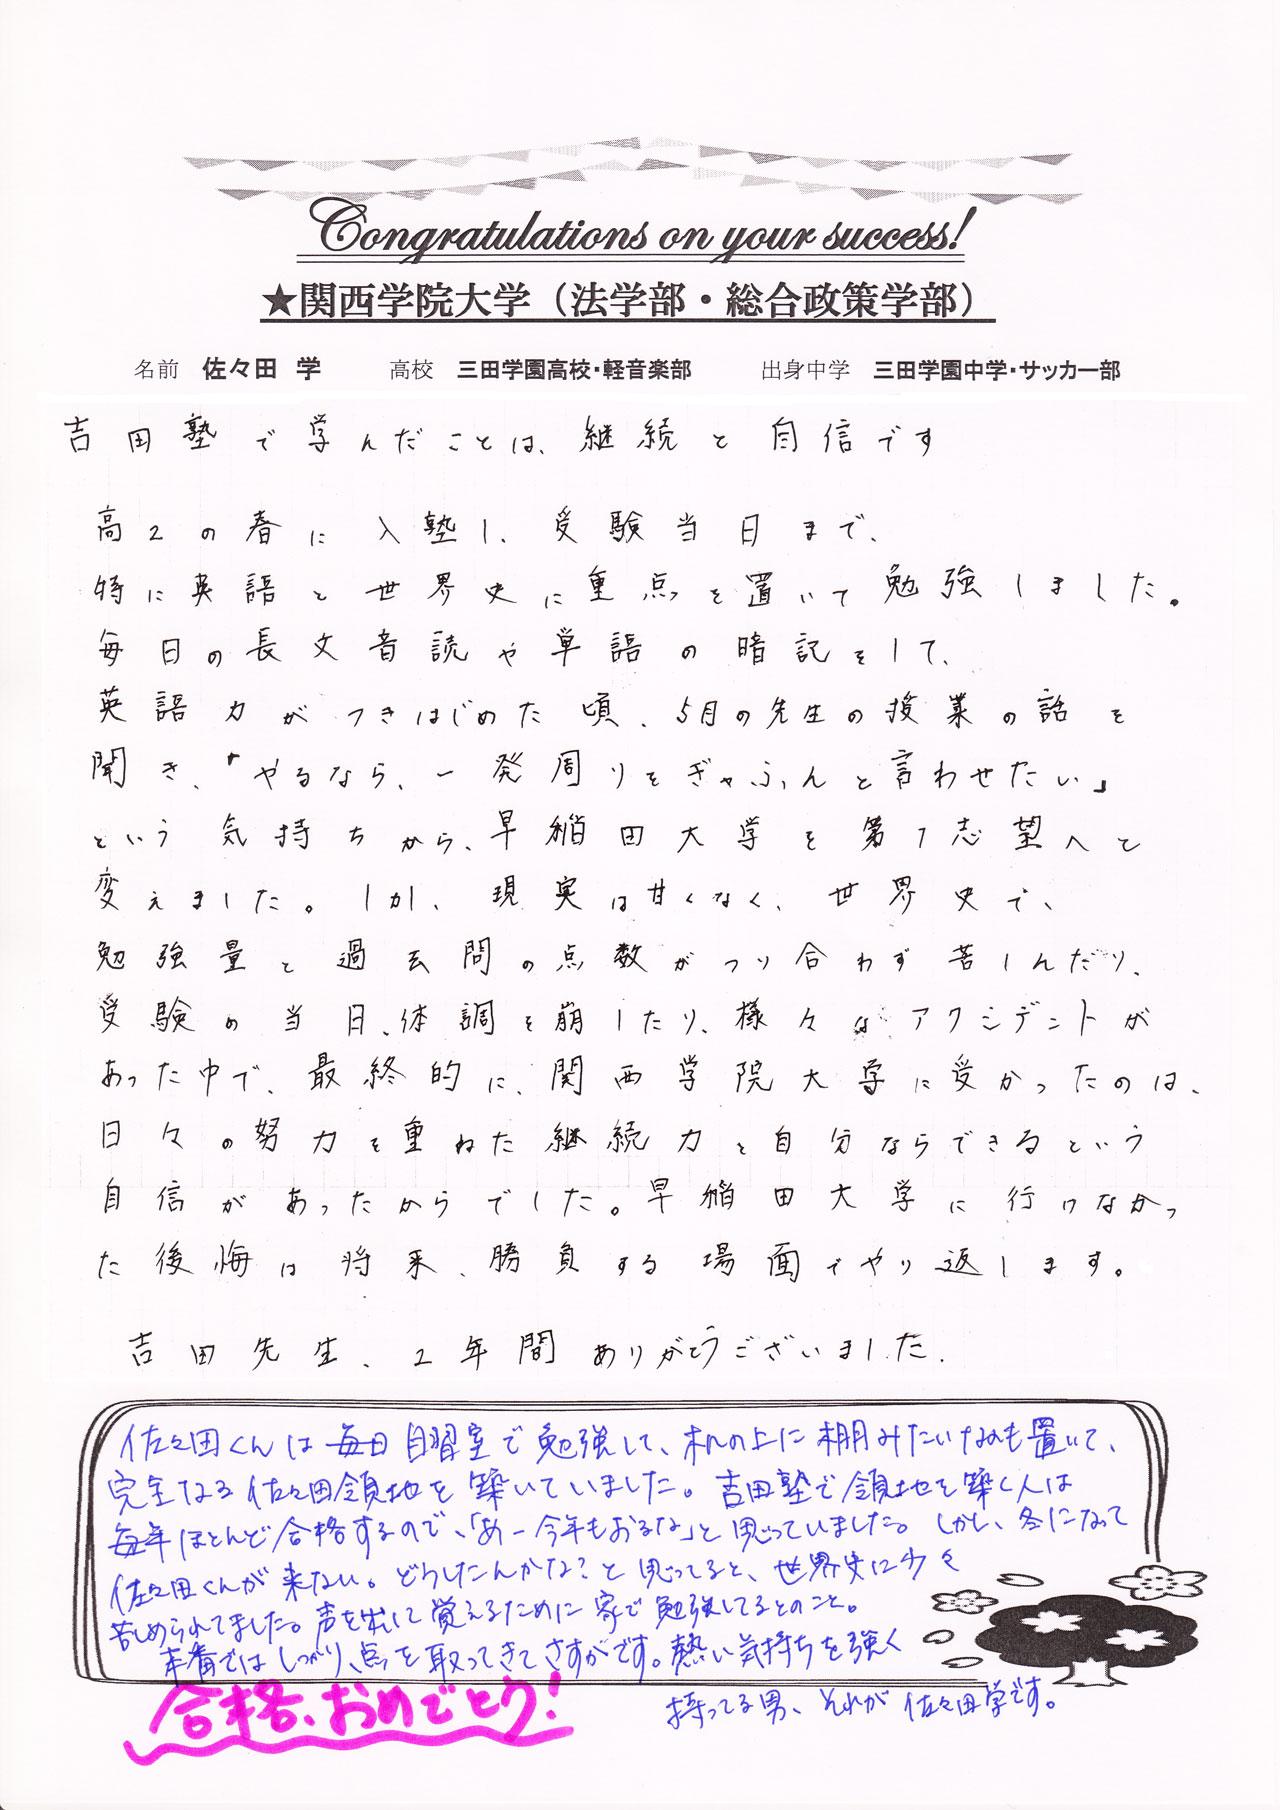 Congratulations on your success!
★関西学院大学（法学部・総合政策学部）
名前 佐々田 学 高校 三田学園高校・軽音楽部 出身中学 三田学園中学・サッカー部
吉田塾で学んだことは、継続と自信です
高2の春に入塾し、受験当日まで、
特に英語と世界史に重点を置いて勉強しました。
毎日の長文音読や単語の暗記をして、
英語力がつきはじめた頃、5月の先生の授業の話を
聞き、「やるなら、一発周りをぎゃふんと言わせたい」
という気持ちから、早稲田大学を第1志望へと
変えました。しかし、現実は甘くなく、世界史で、
勉強量と過去問の点数がつり合わず苦しんだり、
受験の当日、体調を崩したり、様々なアクシデントが
あった中で、最終的に、関西学院大学に受かったのは、
日々の努力を重ねた継続力と自分ならできるという
自信があったからでした。早稲田大学に行けなかっ
た後悔は将来、勝負する場面でやり返します。
吉田先生、2年間ありがとうございました。
佐々田くんは毎日自習室で勉強して、机の上に棚みたいなのも置いて、
完全なる佐々田領地を築いていました。吉田塾で領地を築く人は
毎年ほとんど合格するので、「あー今年もおるな」と思っていました。しかし、冬になって
佐々田くんが来ない。どうしたんかな？と思ってると、世界史に少々
苦しめられてました。声を出して覚えるために家で勉強してるとのこと。
本番ではしっかり、点を取ってきてさすがです。熱い気持ちを強く
持ってる男、それが佐々田学です。
合格、おめでとう！